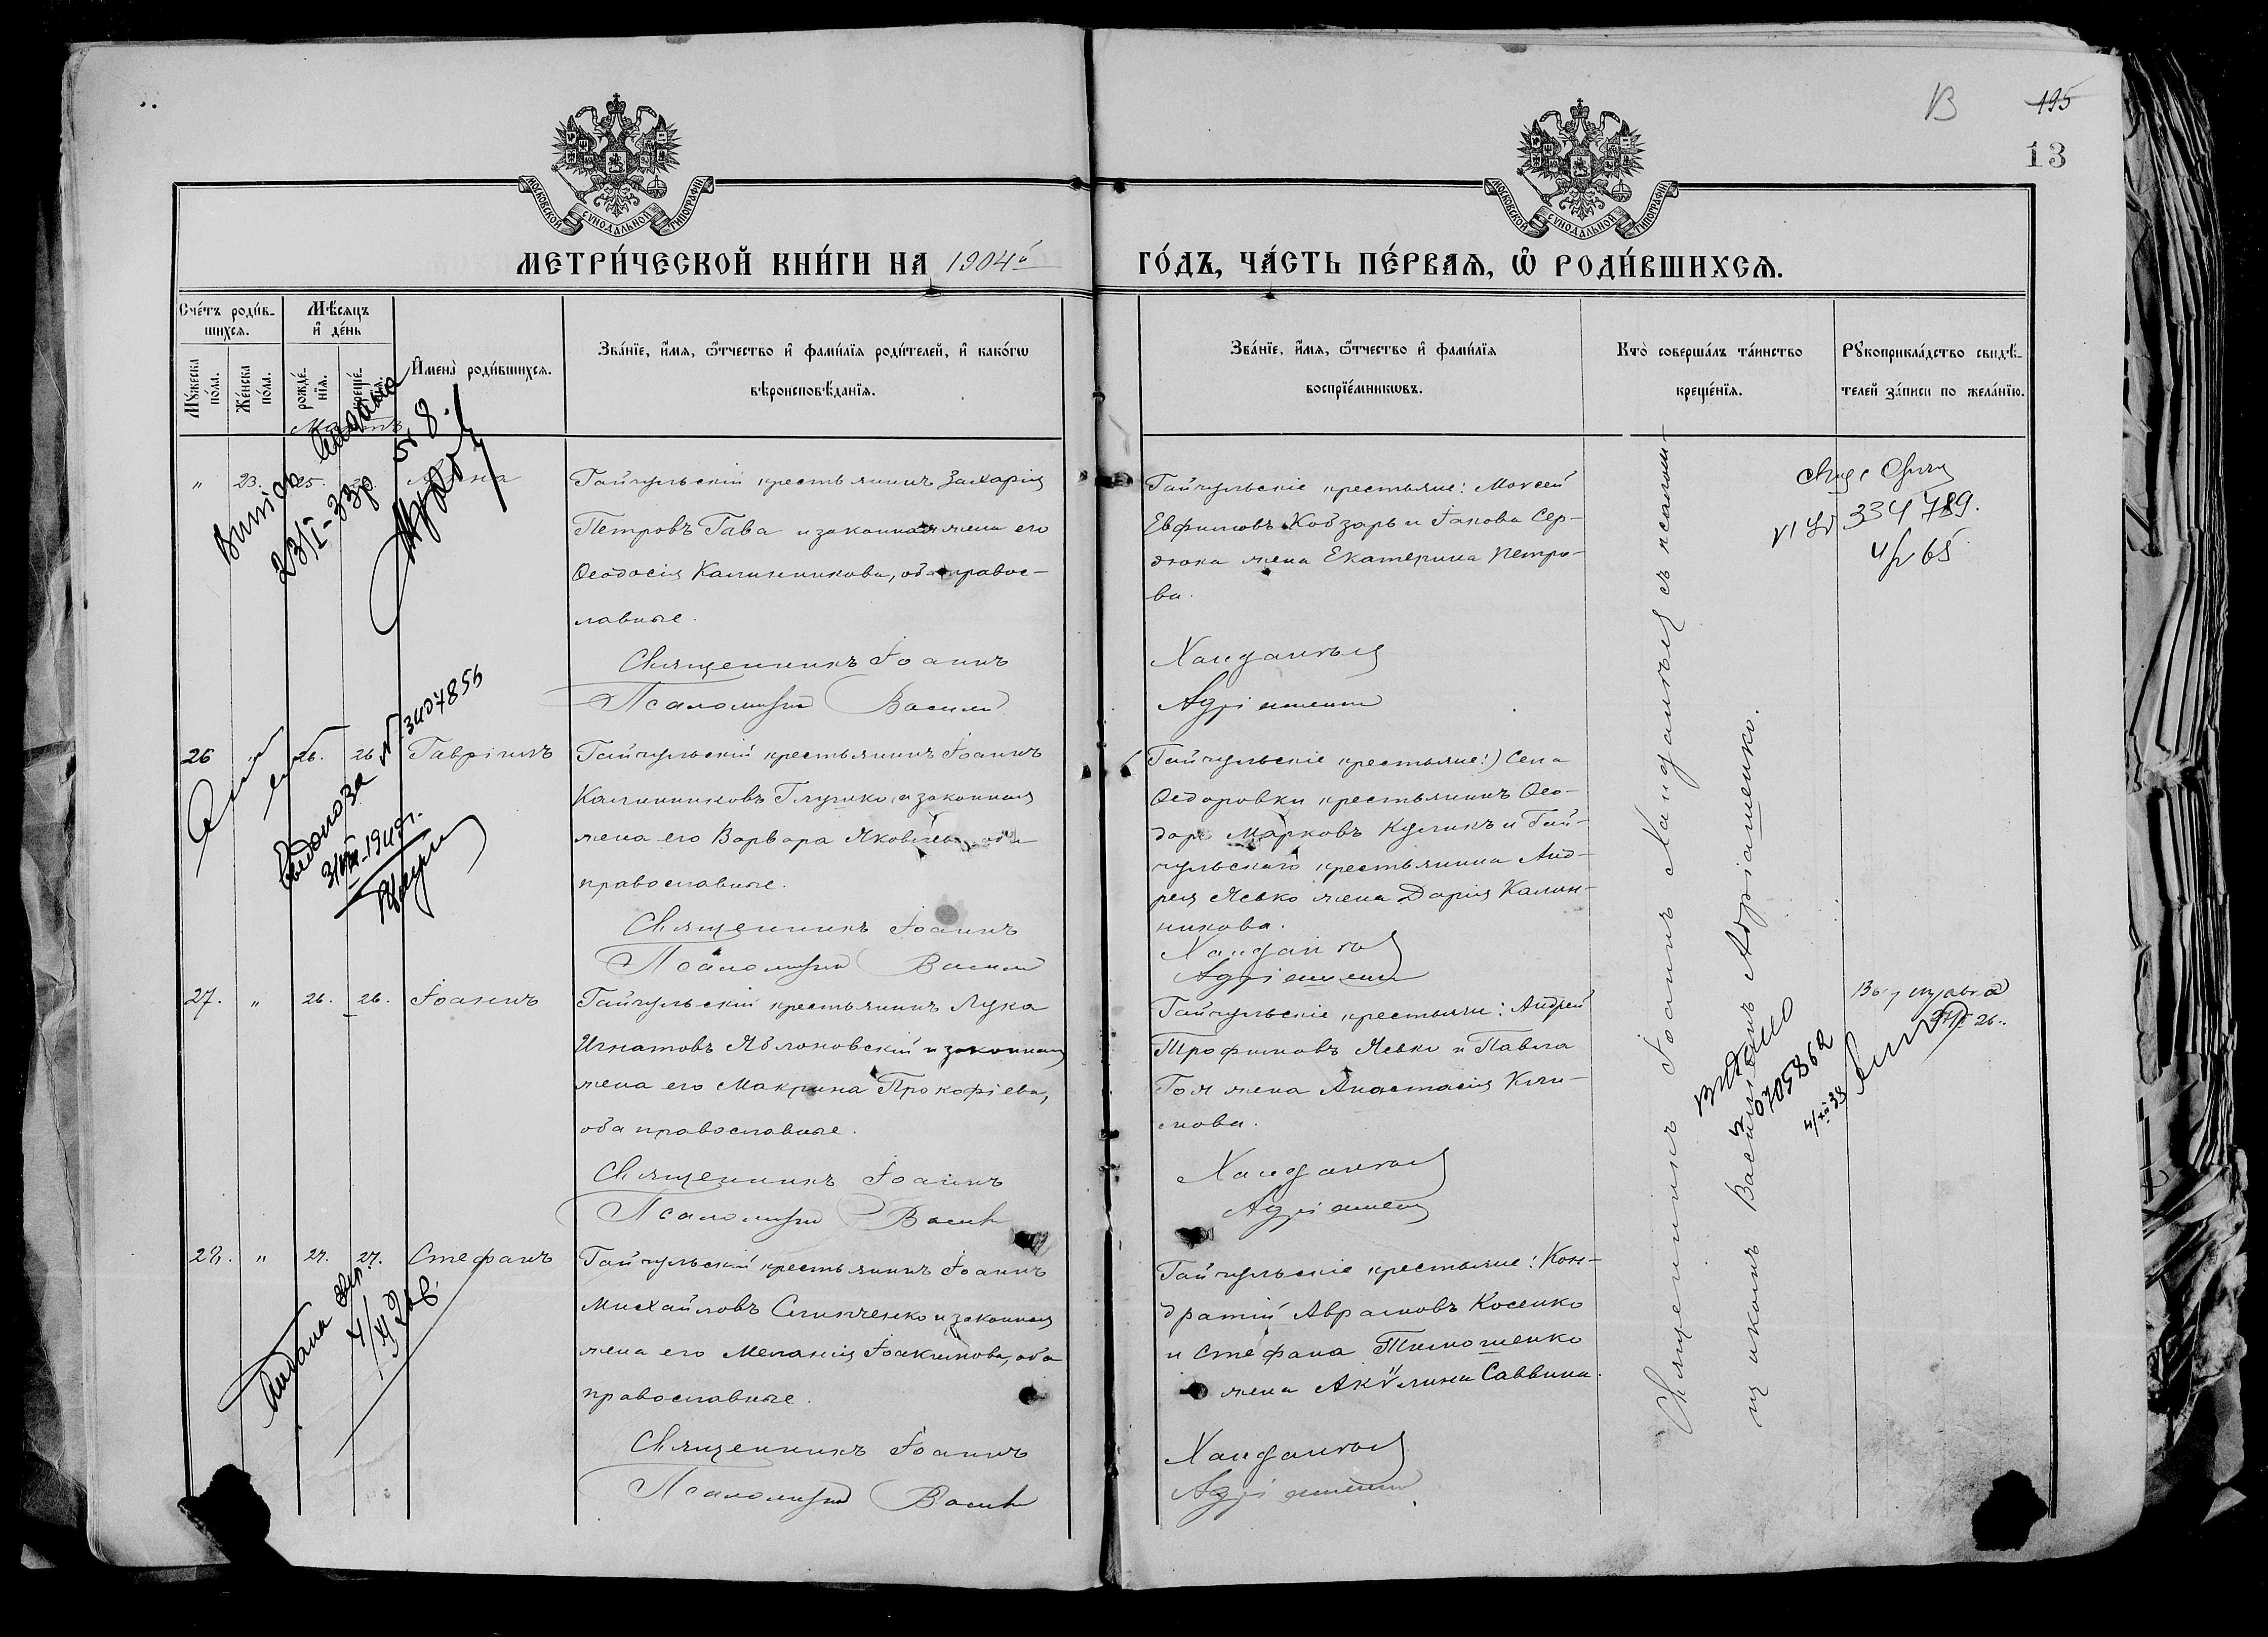 В 195
13
МОСКОВСКОЙ СУНОДАЛЬНОЙ ТИПОГРАФІИ
МОСКОВСКОЙ СУНОДАЛЬНОЙ ТИПОГРАФІИ
МЕТРИ́ЧЕСКОЙ КНИ́ГИ НА 1904й ГО́ДЪ, ЧА́СТЬ ПЕ́РВАѦ, Ѡ҆ РОДИ́ВШИХСѦ.
Сче́тъ роди́в-
шихсѧ.
Мꙋ́жеска по́ла.
Же́нска по́ла.
Мѣ́сѧцъ
и҆ де́нь
рожде́-нїѧ.
креще́-нїѧ.
И҆мена̀ роди́вшихсѧ.
Зва́нїе, и҆́мѧ, ѻ҆́тчество и҆ фами́лїѧ роди́телей, и҆ како́гѡ
вѣроисповѣ́данїѧ.
Зва́нїе, и҆́мѧ, ѻ҆́тчество и҆ фами́лїѧ
воспрїе́мникѡвъ.
Кто̀ соверша́лъ та́инство
креще́нїѧ.
Рꙋкоприкла́дство свидѣ́-
телей за́писи по жела́нїю.
" 23. 25.
Гайчульскій крестьянинъ Захарія
Петровъ Гава и законная жена его
Ѳеодосія Калинникова, оба правос-
лавные.
Священникъ Іоаннъ
Псаломщик Васили
Гайчульскіе крестьяне: Моисей
Евфимовъ Кобзарь и Іакова Сер-
дюка жена Екатерина Петро-
ва.
Ханданъя
Адріяшенко
334789.
65
23/I-33р № 8
26 " 26. 26 Гавріилъ
Гайчульскій крестьянинъ Іоаннъ
Калинниковъ Глушко и законная
жена его Варвара Яковлева, оба
православные.
Священникъ Іоаннъ
Псаломщик Васили
Гайчульскіе крестьяне:) Села
Ѳедоровки крестьянинъ Ѳео-
доръ Марковъ Куликъ и Гай-
чульскаго крестьянина Анд-
рея Ясько жена Дарія Калин-
никова.
Ханданъя
Адріяшенко
№ 3407856
27. " 26. 26. Іоаннъ
Гайчульскій крестьянинъ Лука
Игнатовъ Яблоновскій и законная
жена его Макрина Прокофіева,
оба православные.
Священникъ Іоаннъ
Псаломщик Васили
Гайчульскіе крестьяне: Андрей
Трофимовъ Ясько и Павла
Гоя жена Анастасія Кли-
мова.
Ханданъя
Адріяшенко
видано
0705862
28. " 27. 27. Стефанъ
Гайчульскій крестьянинъ Іоаннъ
Михайловъ Слипченко и законная
жена его Меланія Іоакимова, оба
православные.
Священникъ Іоаннъ
Псаломщик Васили
Гайчульскіе крестьяне: Кон-
дратій Аврамовъ Косенко
и Стефана Тимошенко
жена Акѵлина Саввина.
Ханданъя
Адріяшенко
Священникъ Іоаннъ Ханданъя съ псалом-
щикомъ Василіемъ Адріяшенко.